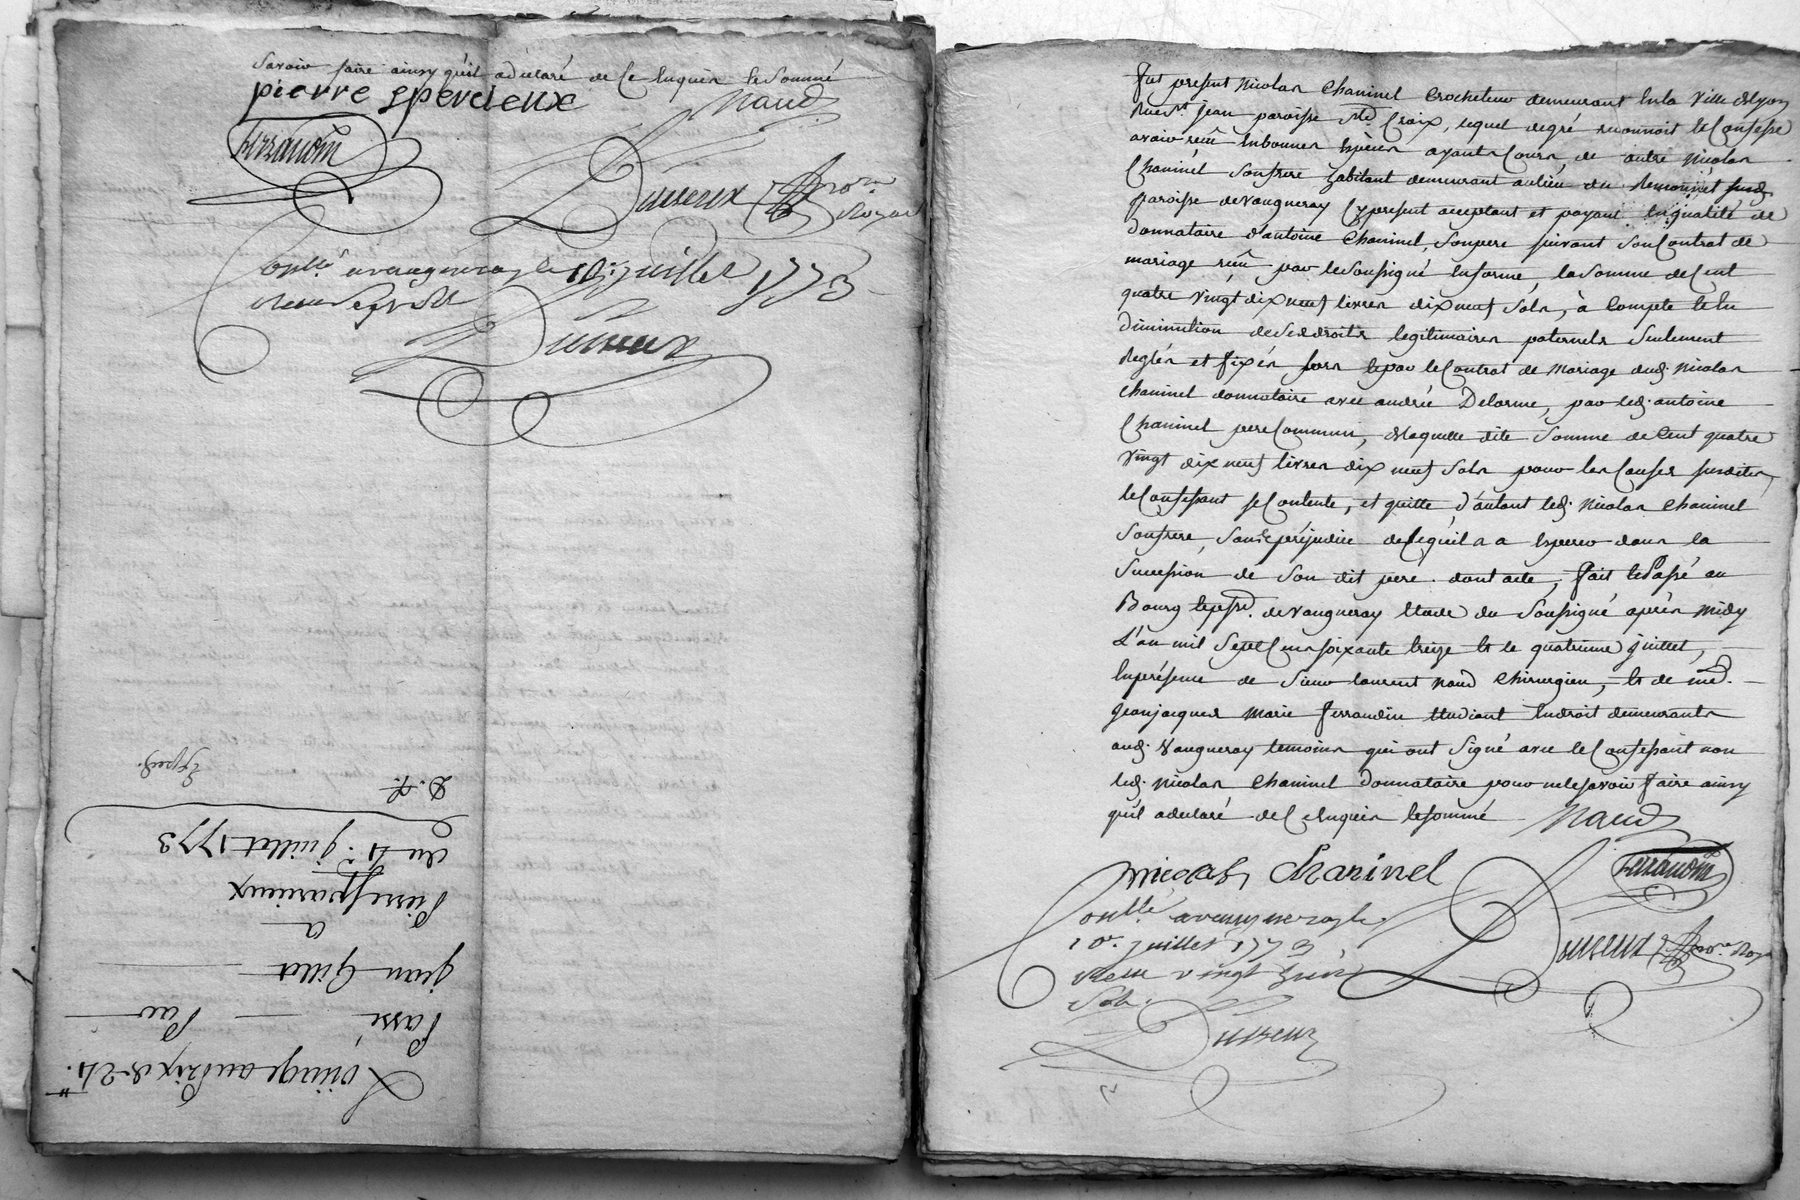 savoir faire ainsy qu'il a déclaré de ce enquis et sommé
pierre sperdeux
naud
ferrandin
Duseux
no.re Royal
Conllé a vaugneray le 10.e juillet 1773
Reçu
Duseux
Louage au prix de 24.ll
Passé Par
jean Gillot
a
Pierre sparcieux
du 4.e juillet 1773
D. q.
Exped.
fut present nicolas Chaninel Crocheteur demeurant en la Ville de Lyon
Rue St. jean paroisse Ste. Croix, lequel de gré reconnoit et Confesse
avoir reçû en bonnes espèces ayants Cours, de autre nicolas
Chaninel son frere habitant demeurant au lieu du
paroisse de Vaugneray Cy present acceptant et payant en qualité de
donnataire d'antoine Chaninel, son pere suivant son Contrat de
mariage reçû par le soussigné en forme, la somme de Cent
quatre Vingt dix neuf livres dix neuf sols, à Compte et en
diminution de ses droits legitimaires paternels seulement
Reglés et fixés par le Contrat de mariage dud. nicolas
Chaninel donnataire avec andrée Delorme, par led. antoine
Chaninel pere Commun, de laquelle dite somme de Cent quatre
Vingt dix neuf livres dix neuf sols pour les Causes susdites,
le Confessant se Contente, et quitte d'autant led. nicolas Chaninel
son frere, sans préjudice de Ce qu'il a a esperer dans la
succession de son dit pere. dont acte, fait et Passé au
Bourg de Vaugneray etude du soussigné après midy
L'an mil sept Cens soixante treize et le quatrieme juillet,
en présence de sieur laurent naud Chirurgien, et de me.
jean jacques marie ferrandin etudiant en droit demeurants
aud. Vaugneray temoins qui ont signé avec le Confessant non
led. nicolas Chaninel donnataire pour ne le savoir faire ainsy
qu'il a declaré de Ce enquis et sommé
naud
nicolas Chaninel
ferrandin
Conllé a vaugneray le
10.e juillet 1773
Reçu vingt huit
sols.
Duseux
no.re Roya
Duseux